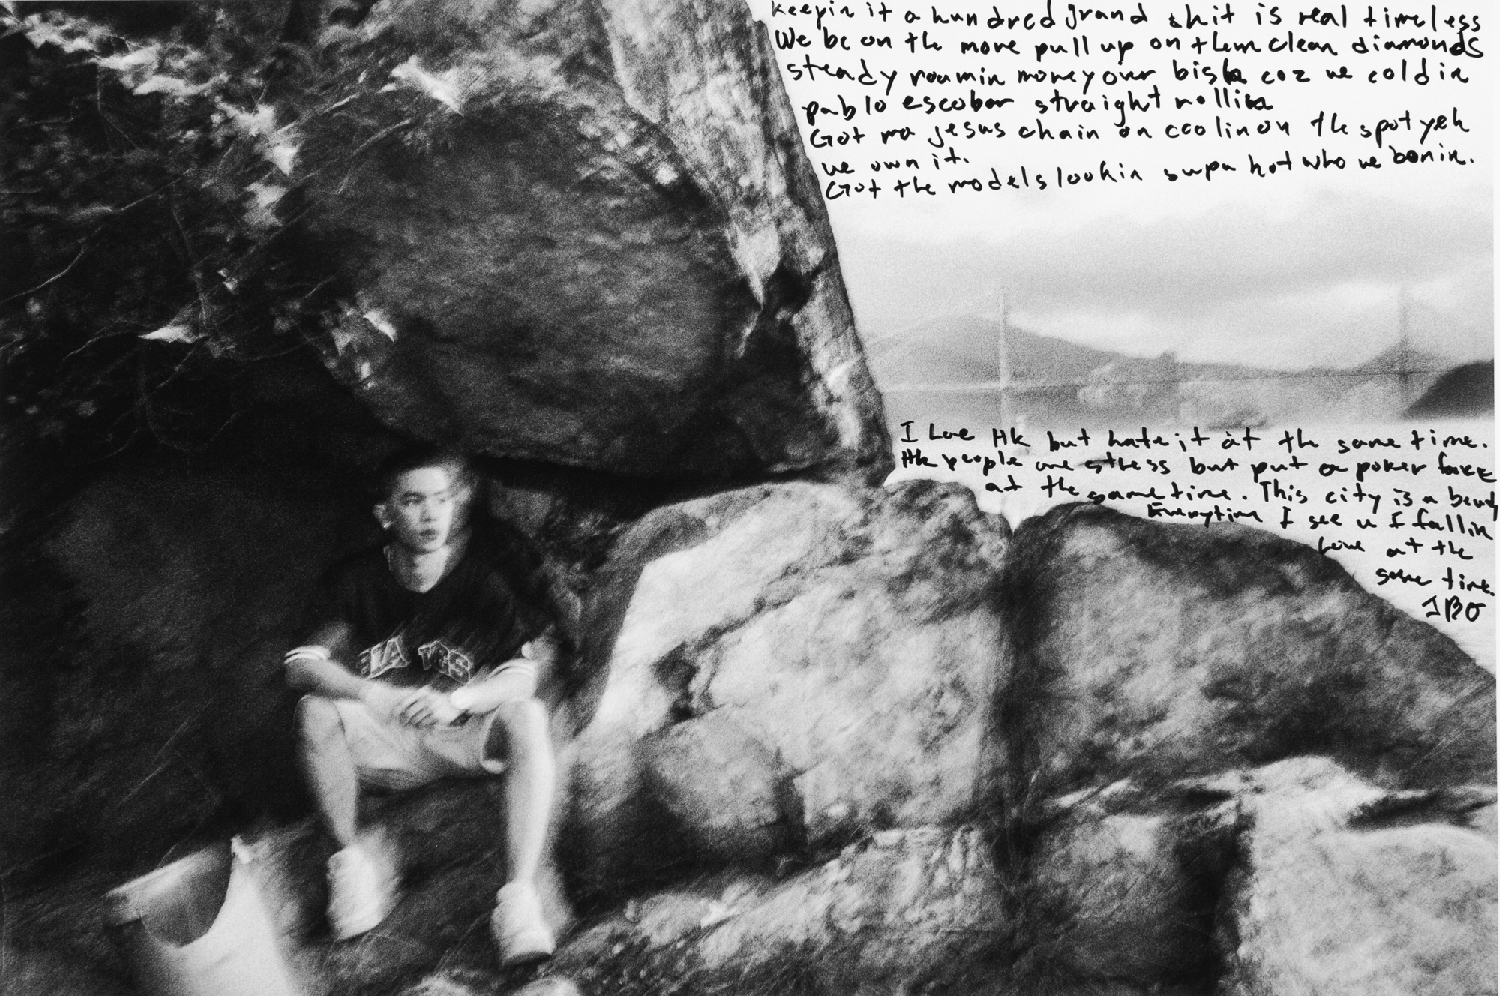 keepin it a hundred grand shit is real timeless
We be on the move pull up on them clean diamonds
steady roamin money over bish coz we cold in
pablo escobar straight rollin
Got ma jesus chain on coolin on the spot yeh
we own it.
Got the models lookin supa hot who we bonin.
I Love HK but hate it at the same time.
HK people are stress but put a poker face
at the same time. This city is a
Everytime I see u I fallin
love at the
same time.
JBO